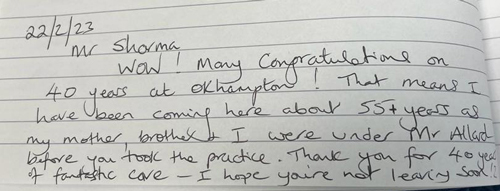 22/2/23
Mr Sharma
WOW! Many Congratulations on
40 years at Okhampton! That means I
have been coming here about 55+ years as
my mother, brother & I were under Mr Allard
before you took the practice. Thank you for 40 years
of fantastic care - I hope you're not leaving soon!